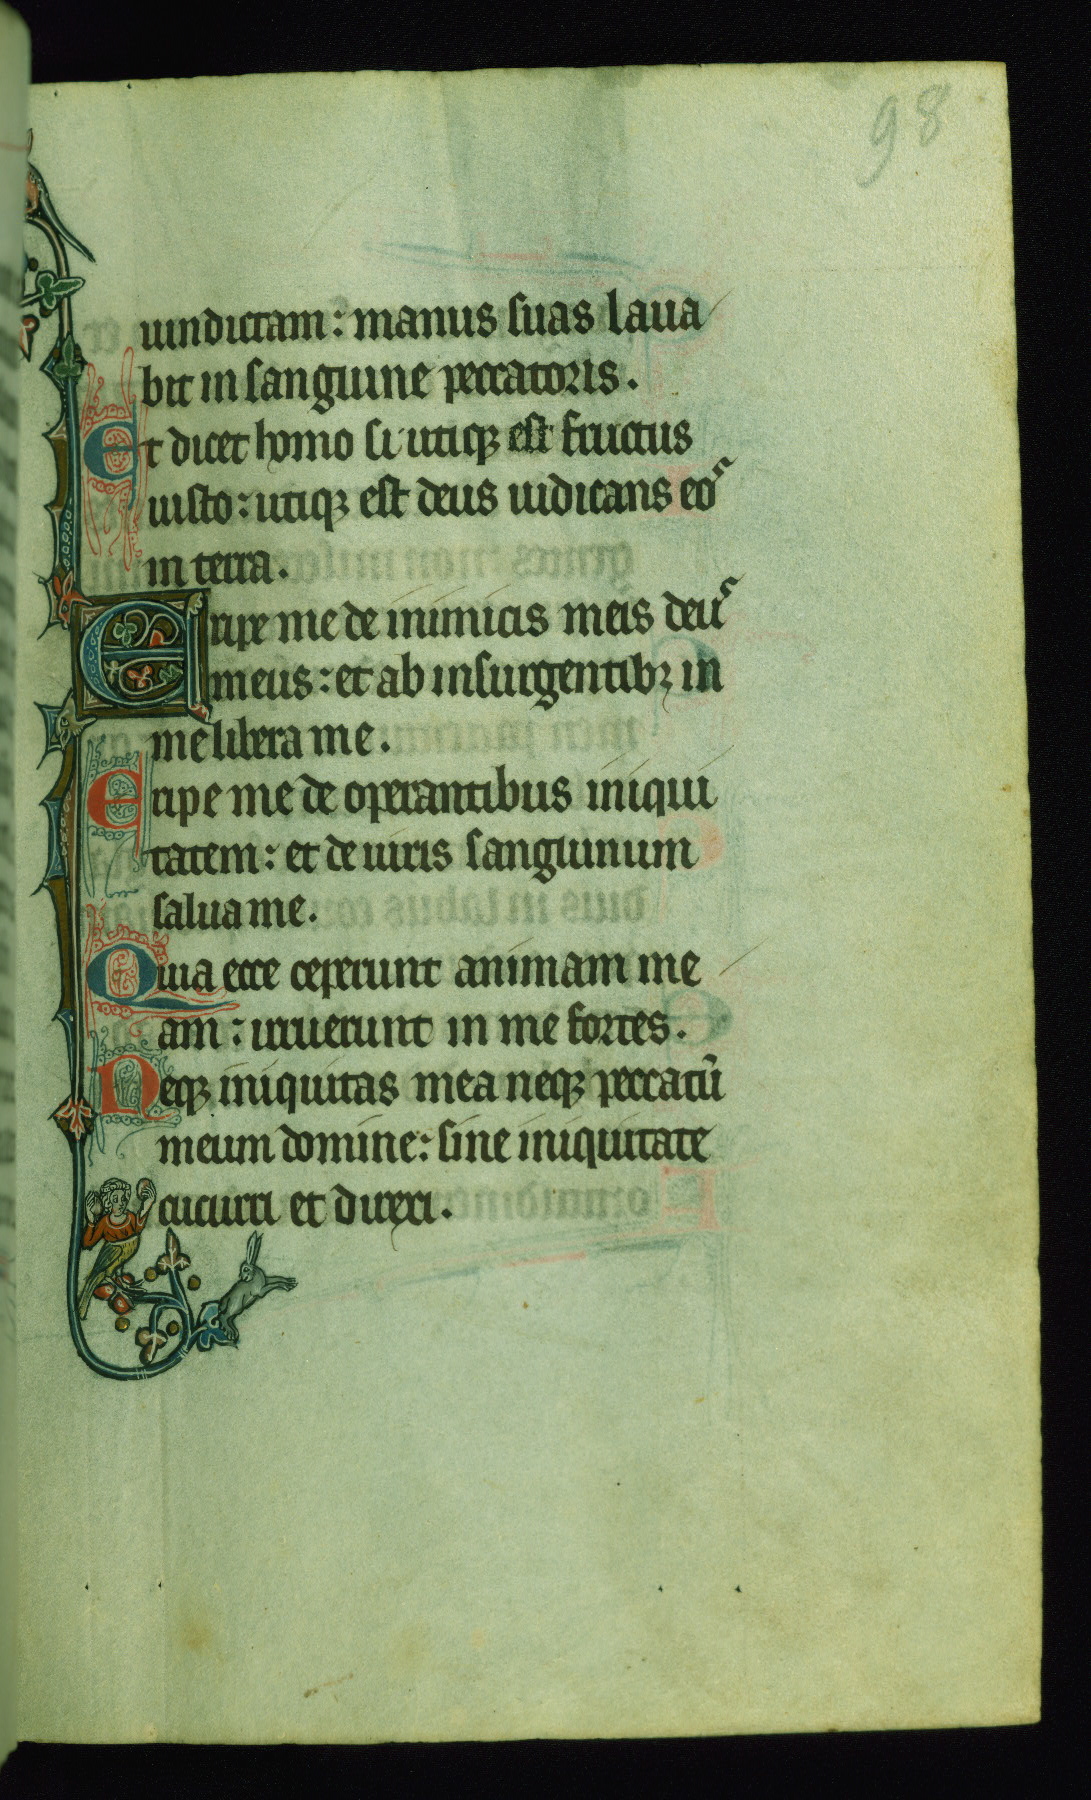 98
uindictam: manus suas laua
bit in sanguine peccatoris.
Et dicet homo si utiqꝫ est fructus
iusto: utiqꝫ est deus iudicans eos
in terra.
Eripe me de inimicis meis deus
meus: et ab insurgentibꝫ in
me libera me.
Eripe me de operantibus iniqui
tatem: et de uiris sanguinum
salua me.
Quia ecce ceperunt animam me
am: irruerunt in me fortes.
Neqꝫ iniquitas mea neqꝫ peccatū
meum domine: sine iniquitate
cucurri et direxi.